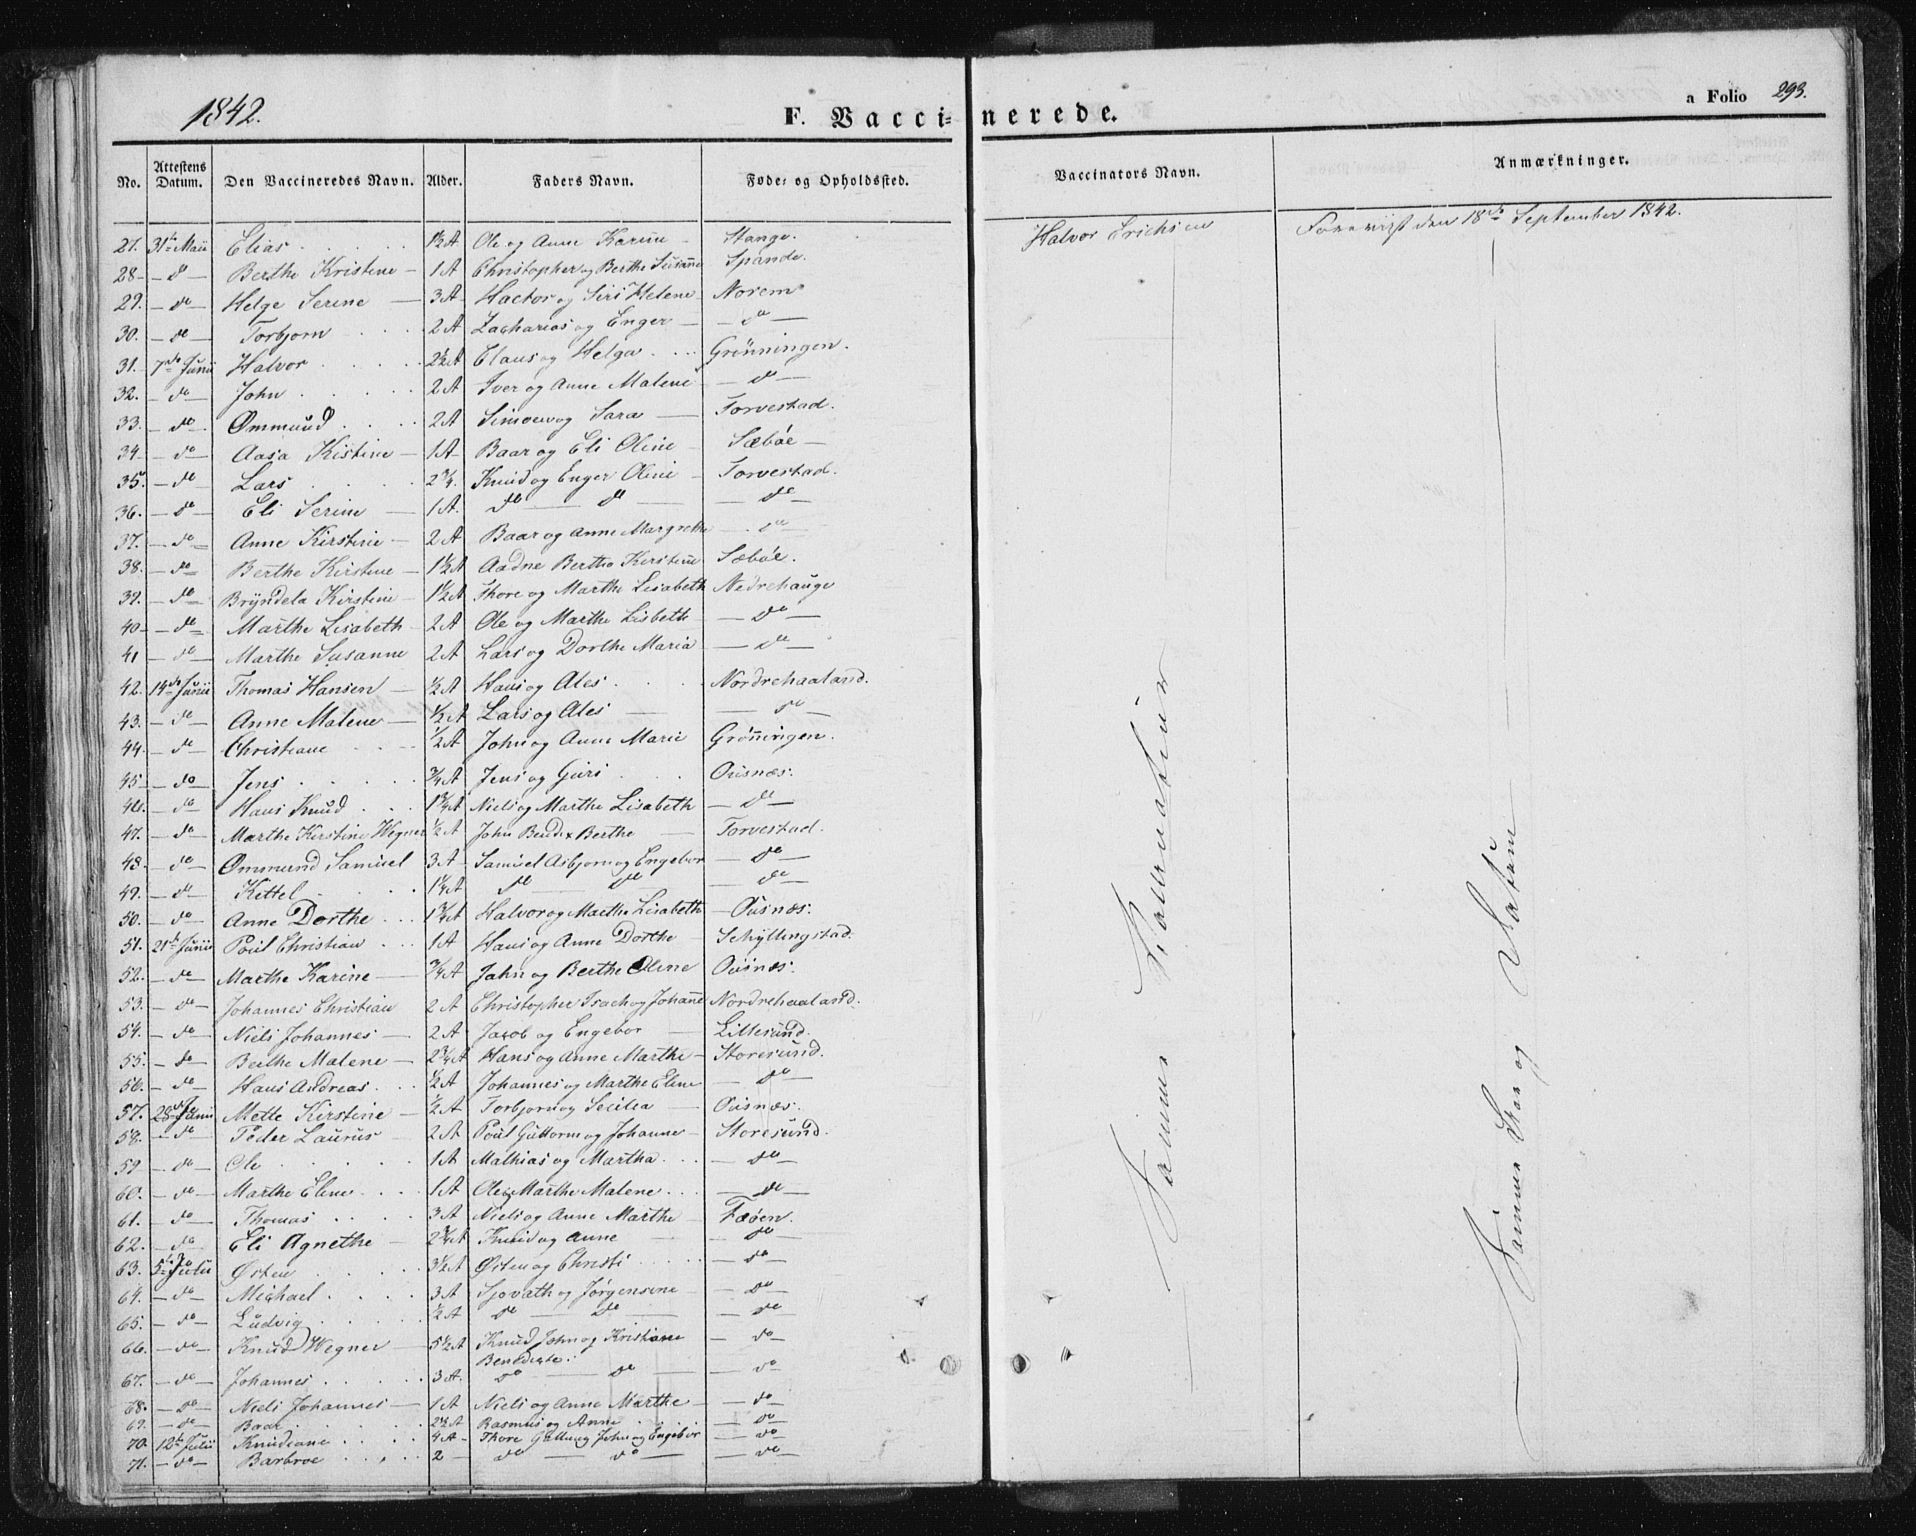 1842.
F. Vaccinerede.
a Folio 293.
No. Attestens Datum. Den Vaccineredes Navn. Alder. Faders Navn. Føde- og Opholdssted. Vaccinators Navn. Anmærkninger.
27. 31te Maii Elias 1½ A Ole og Anne Karine Stange. Halvor Erichsen Foreviist den 18de September 1842.
28 - do - Berthe Kristine - 1 A Christopher og Berthe Susanne Spande.
29. - do Helge Serine - 3 A Hactor og Siri Helene Norem
30. - do - Torbjorn 2 A Zacharias og Enger - - do -
31. 7de Junii Halvor 2½ A Claus og Helga Grönningen.
32. - do - John 2 A Iver og Anne Malene - do -
33. - do Ommund 2 A Simoen og Sara - Torvestad.
34 - do - Aasa Kistine - 1 A - Baar og Eli Oline - Sæböe -
35. - do - Lars 2¾. Knud og Enger Oline - Torvestad.
36. - do - Eli Serine - 1 A. do - do - - do -
37. - do - Anne Kirstine - 2 A Baar og Anne Margrethe - do -
38. - do - Berthe Kirstine - 1½ A Aadne Bertha Kirstine Sæböe.
39. - do - Bryndela Kirstine - 1½ A Thore og Marthe Lisabeth Nedrehauge
40 - - do - Marthe Lisabeth - 2 A Ole og Marthe Lisbeth - do -
41 - do - Marthe Susanne 2 A Lars og Dorthe Maria - do -
42. 14de Junii Thomas Hansen - ½ A Hans og Ales Nordrehaaland.
43. - do - Anne Malene - ½ A Lars og Ales - - do -
44. - do - Christiane ½ A John og Anne Marie Grönningen.
45 - - do - Jens ¾ A Jens og Guri Ousnæs.
46. - do - Hans Knud 1¾ A Niels og Marthe Lisabeth - do -
47. - do - Marthe Kirstine Wegner ½ A John Bendix Berthe - Torvestad.
48. - do - Ommund Samuel 3 A - Samuel Asbjorn og Engebor - do -
49. - do - Kettel 1¼ A do - do - do -
50. - do - Anne Dorthe 1¾ A Halvor og Marthe Lisabeth - Ousnæs.
51. 21de Junii Poul Christian 1 A Hans og Anne Dorthe - Schyllingstad.
52. - do - Marthe Karine - ¾ A John og Berthe Oline Ousnæs.
53. - do - Johannes Christian 2 A Christopher Isach og Johanne Nordrehaaland.
54. - do - Niels Johannes - 2 A Jacob og Engebor - Lillesund.
55. - do - Berthe Malene - 2¾ A Hans og Anne Marthe - Storesund.
56. - do - Hans Andreas. ½ A Johannes og Marthe Elene - do -
57. 28de Junii Mette Kirstine - ½ A Torbjorn og Secilia - Ousnæs.
58. - do - Peder Laurus - 2 A Poul Guttorm og Johanne - Storesund.
59 - do - Ole 1 A Mathias og Martha - do -
60. - do - Marthe Elene 1 A Ole Marthe Malene - do -
61. - do - Thomas 3 A Niels og Anne Marthe - Fæöen.
62. - do - Eli Agnethe - 2¾ A Knud og Anne - - do -
63. 5te Julii Østen 3½ A Østen og Christi - do -
64. - do - Michael 3 A Sjovath og Jørgensine - do -
65. - do - Ludvig ½ A do - do - - do -
66. - do - Knud Wegner - 5½ A Knud John og Kristiane - do -
Benedicte.
67. - do - Johannes 3 A. do - do - - do -
68. - do - Niels Johannes - 1 A Niels og Anne Marthe - - do -
69. - do - Baar 2½ A Rasmus og Anne - do -
70. 12te Julii Knudiane 4 A - Thore Gullung John og Engebor - do -
71. - do - Barbroe 2 - do - do - - do -
Samme
Samme Sted og Datum